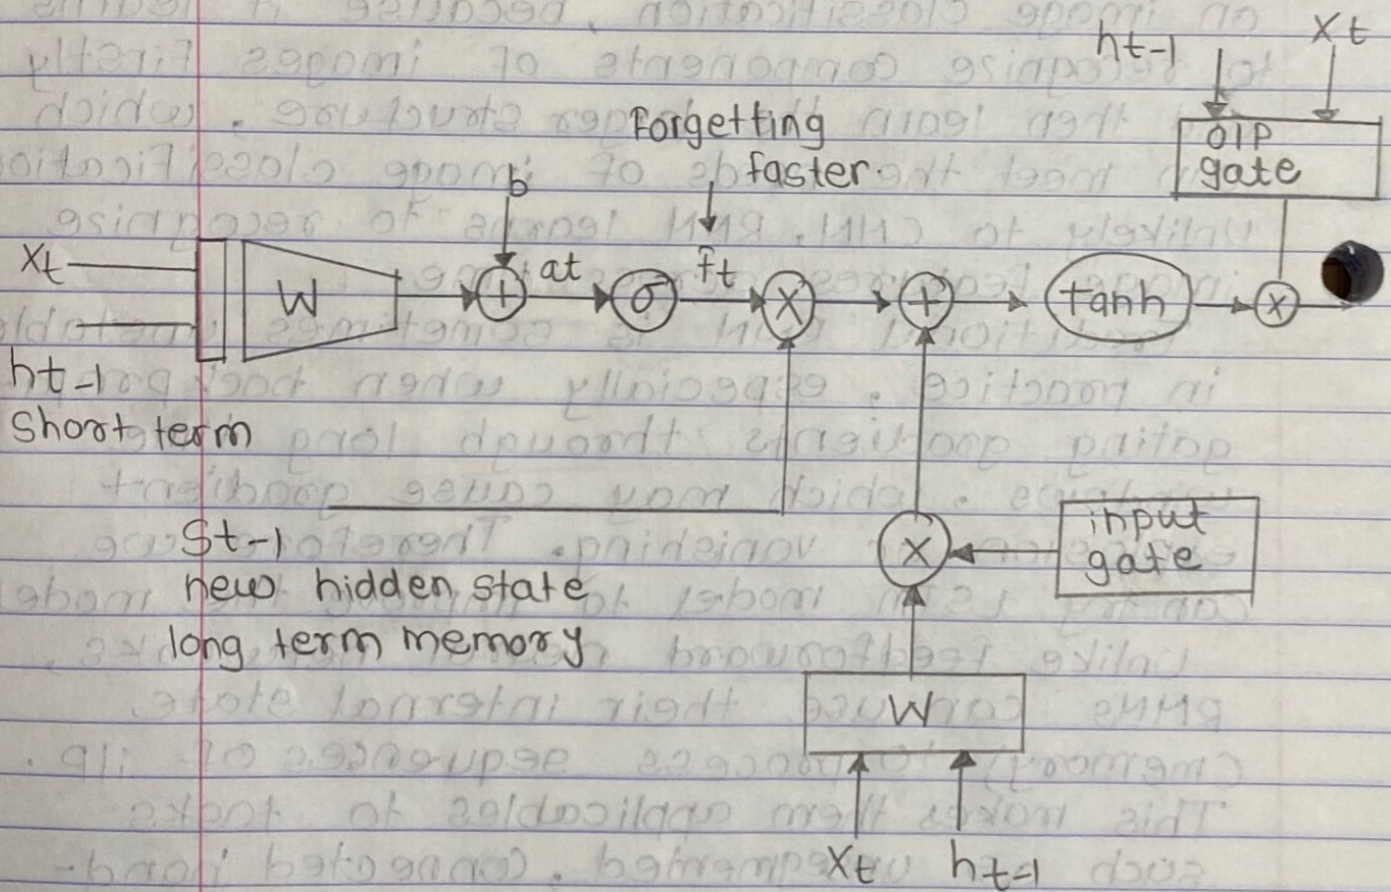 ht-1
xt
O/P
gate
Forgetting
faster.
b
xt
W
+
at
σ
ft
x
+
tanh
x
ht-1
short term
St-1
new hidden state
long term memory
x
input
gate
W
xt
ht-1